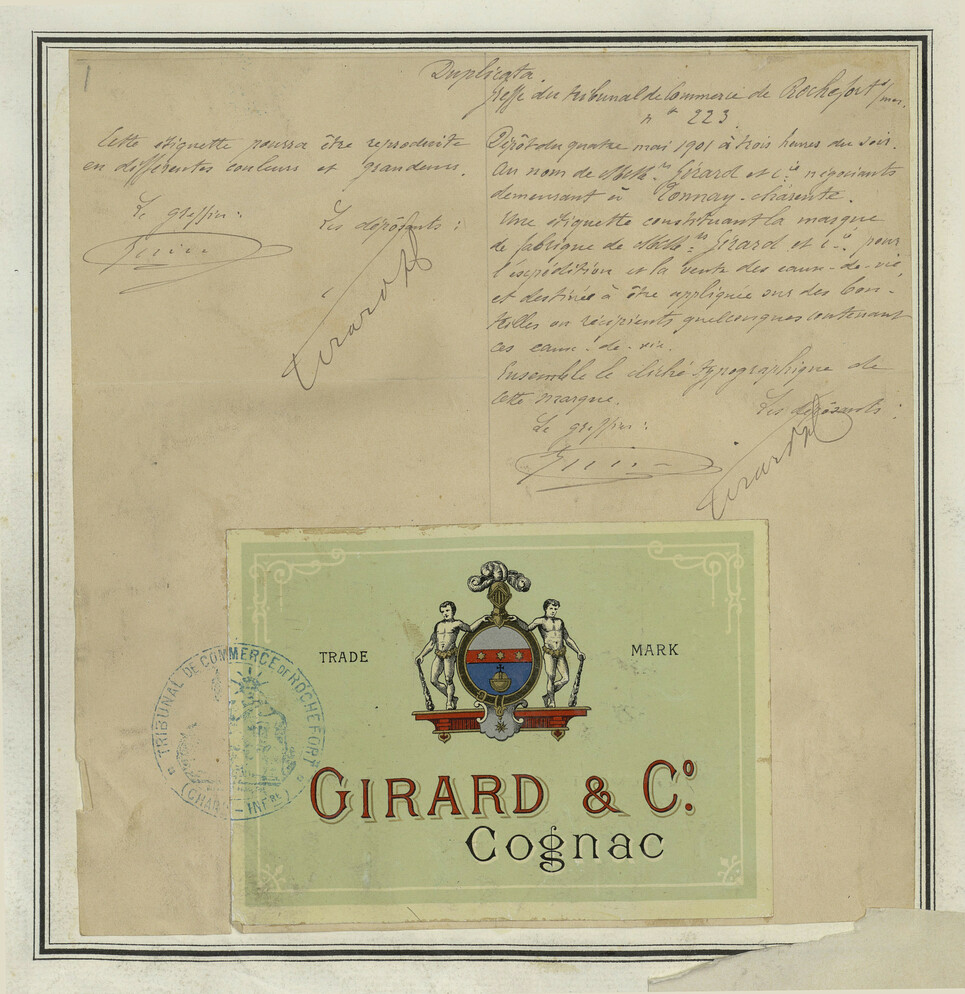 Duplicata.
Greffe du tribunal de Commerce de Rochefort s/mer.
n° 223
Cette étiquette pourra être reproduite
en différentes couleurs et grandeurs.
Le greffier:
Les déposants:
Girard
Dépôt du quatre mai 1901 à trois heures du soir.
Au nom de MM.rs Girard et Cie négociants
demeurant à Tonnay-charente.
Une étiquette constituant la marque
de fabrique de MM.rs Girard et Cie pour
l'expédition et la vente des eaux-de-vie,
et destinée à être appliquée sur des bou-
teilles ou récipients quelconques contenant
ces eaux-de-vie.
Ensemble le cliché typographique de
cette marque.
Le greffier:
Les déposants:
Girard
TRADE MARK
GIRARD & Cº.
Cognac
TRIBUNAL DE COMMERCE DE ROCHEFORT
(CHAR.-INFRE)